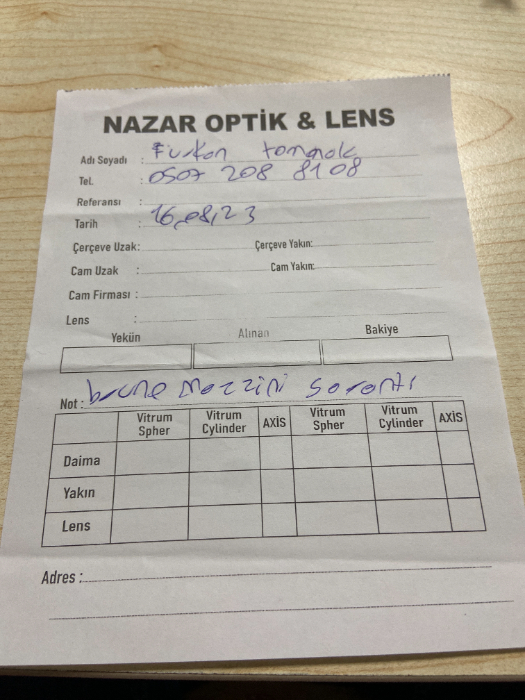 NAZAR OPTİK & LENS
Adı Soyadı : Furkan
Tel. : 0507 208 8108
Referansı :
Tarih : 16,08,23
Çerçeve Uzak: Çerçeve Yakın:
Cam Uzak : Cam Yakın:
Cam Firması :
Lens :
Yekün Alınan Bakiye
Not : brune mazzini soronti
Vitrum Spher Vitrum Cylinder AXİS Vitrum Spher Vitrum Cylinder AXİS
Daima
Yakın
Lens
Adres :